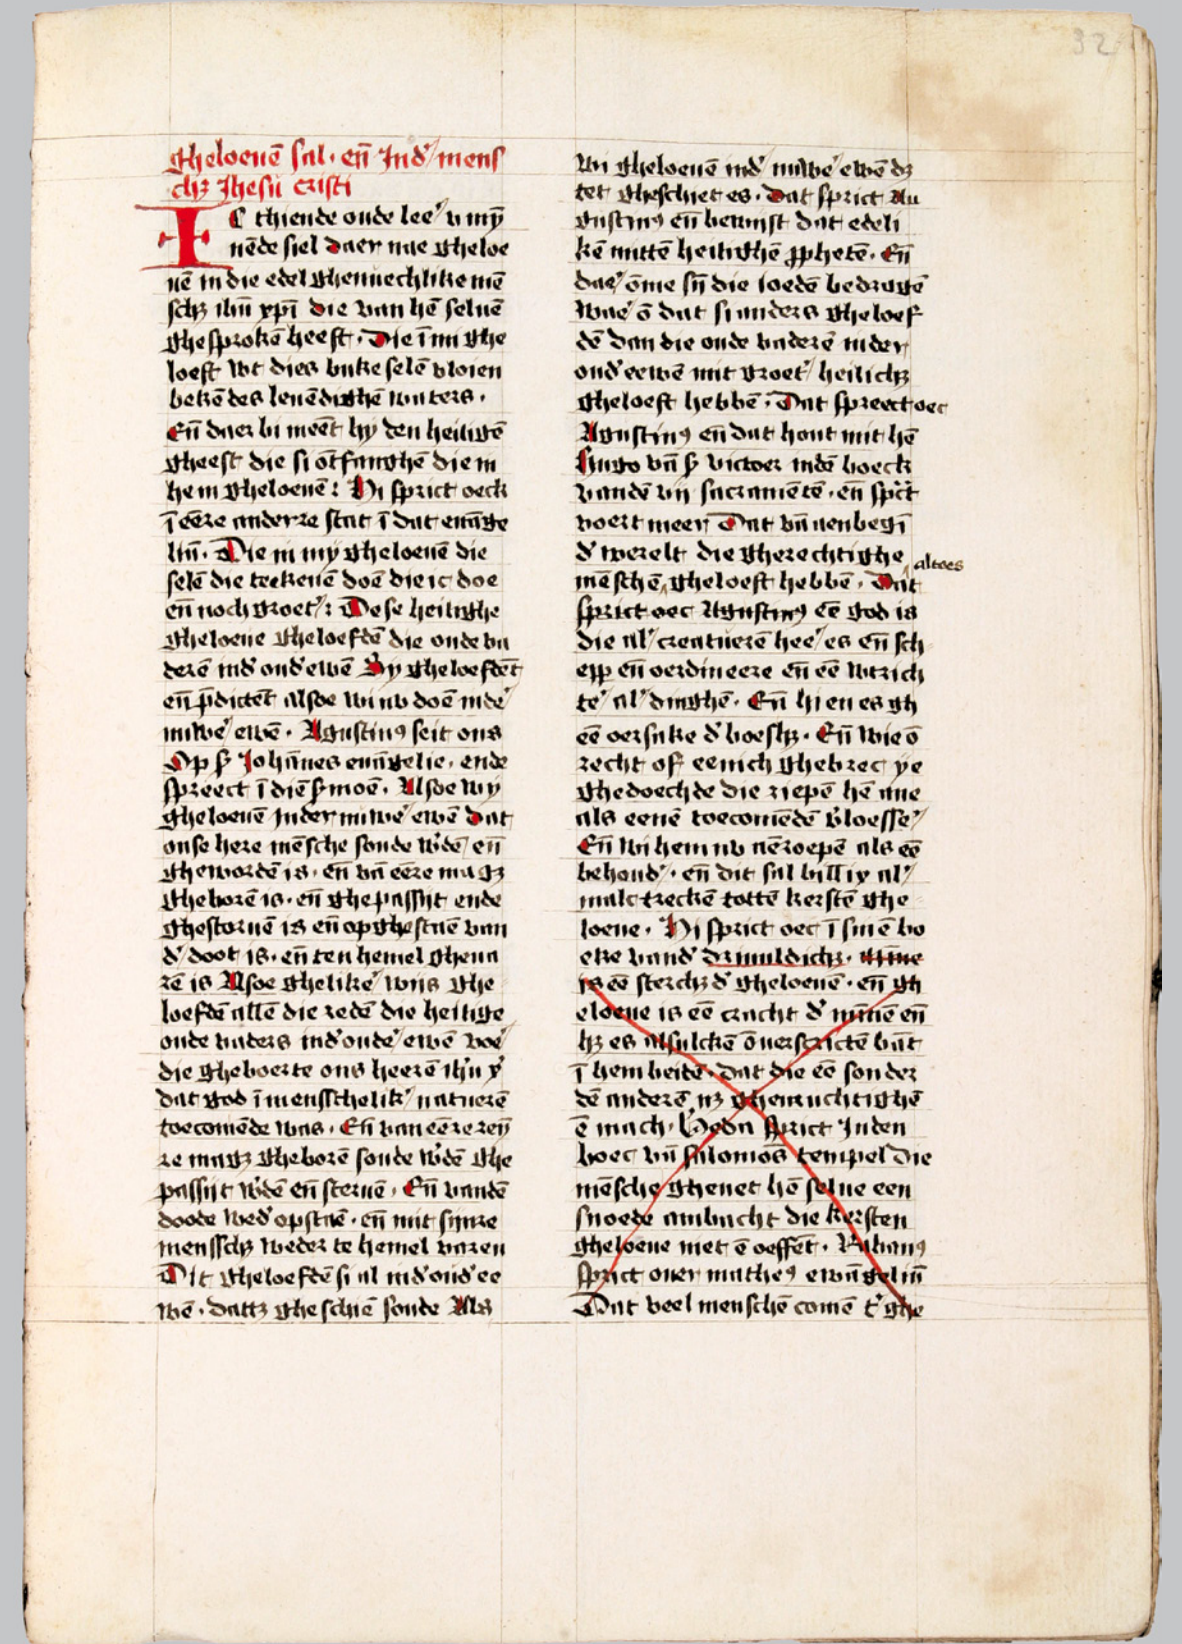 32
gheloeuē sal · eñ Ind'/ mens
chꝫ Jhesū cristi
IC thiende onde lee' v mȳ
nēde siel daer nae gheloe
uē in die edel ghenuechlike mē
schꝫ ihū xpī die van hē seluē
ghesprokē heeft · Die ī mi ghe
loeft wt dies buke selē vloien
bekē des leuēdighē waters ·
Eñ daer bi meēt hy den heiligē
gheest die si ōtfanghē die in
hem gheloeuē : Hi sprict oeck
ī eēre anderre stat ī dat euāge
liū · Die in mȳ gheloeuē die
selē die teekenē doē die ic doe
eñ noch groet'/ : Dese heilighe
gheloeue gheloefdē die onde va
derē ind' ond' ewē Sy gheloefdēt
eñ p̄dictēt alsoe wi nv doē inde'
niwe'/ ewē · Agustinꝰ seit ons
Op s' Johānes euāgelie · ende
spreect ī diē s'moē · Alsoe wy
gheloeuē Inder niwe'/ ewē dat
onse here mēsche soude w'dē / eñ
ghewordē is · eñ vā eēre magꝫ
gheborē is · eñ ghepassijt ende
ghestoruē is eñ opghestaē van
d'/ doot is · eñ ten hemel gheua
rē is Alsoe ghelike'/ wijs ghe
loefdē allē die redē die heilige
onde vaders ind' onde'/ ewē voe'
die gheboerte ons heerē ihū x'
dat god ī menscheliken/ natuerē
toecomēde was · Eñ van eēre rey
re magꝫ gheborē soude w'dē ghe
passijt w'dē eñ steruē · Eñ vandē
doode wed' opstaē · eñ mit sijnre
menschꝫ weder te hemel varen
Dit gheloefdē si al ind' ond' ee
wē · dattꝫ gheschiē soude Als
wi gheloeuē ind'/ niwe'/ ewē dꝫ
tet gheschiet es · Dat sprict Au
gustinꝰ eñ bewijst dat edeli
kē mittē heilighē ꝓphetē · Eñ
dae'/ ōme sȳ die ioedē bedragē
wae' ō dat si anders gheloef
dē dan die onde vaderē in der
ond' eewē mit groet'/ heilichꝫ
gheloeft hebbē · Dat spreect oec
Agustinꝰ eñ dat hout mit hē
Hugo vā s' victoer indē boeck
vandē vij sacramētē · eñ sp̄ct
voert meer Dat vā aenbegī
d' werelt die gherechtighe
altoes
mēschē ‸ gheloeft hebbē · Dat
sprict oec Agustinꝰ eē god is
die al'/ creatuerē hee'/ es eñ sch
epp eñ oerdineere eñ eē wtrich
te'/ al'/ dinghē · Eñ hi en es gh
eē oersake d' boeshꝫ · Eñ wie ō
recht of eenich ghebrec ye
ghedoechde die riepē hē ane
als eenē toecomēdē v'loesse'/
Eñ wi hem nv aēroepē als eē
behoud'/ · eñ dit sal billix al'/
malc treckē tottē kerstē ghe
loeue · Hi sprict oec ī sinē bo
eke vand' drinuldichꝫ · Mine
is eē sterchꝫ d' gheloeuē · eñ gh
eloeue is eē cracht d' mīnē eñ
hꝫ es alsulckē ōuerscrictē bāt
ī hem beidē · dat die eē sonder
dē anderē nꝫ ghenuchtighē
ē mach · Beda sprict Inden
boec vā salomōs tempel die
mēsche gheuet hē selue een
snoede ambacht die kersten
gheloeue niet ē oeffēt · Rabanꝰ
sprict ouer matheꝰ ewāgeliū
Dat veel menschē comē t' ghe